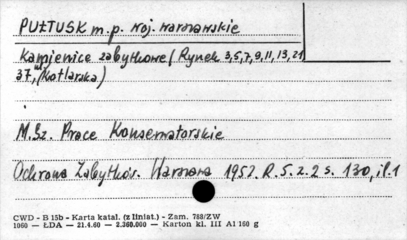 PUŁTUSK m.p. woj. warszawskie
Kamienice zabytkowe (Rynek 3,5,7,9,11,13,21
37, ul. Kotlarska)
M.Sz. Prace Konserwatorskie
Ochrona Zabytków. Warszawa 1952. R. 5. z. 2 s. 130, il. 1
CWD - B 15b - Karta katal. (z liniat.) - Zam. 788/ZW
1060 — ŁDA — 21.4.60 — 2.360.000 — Karton kl. III A1 160 g